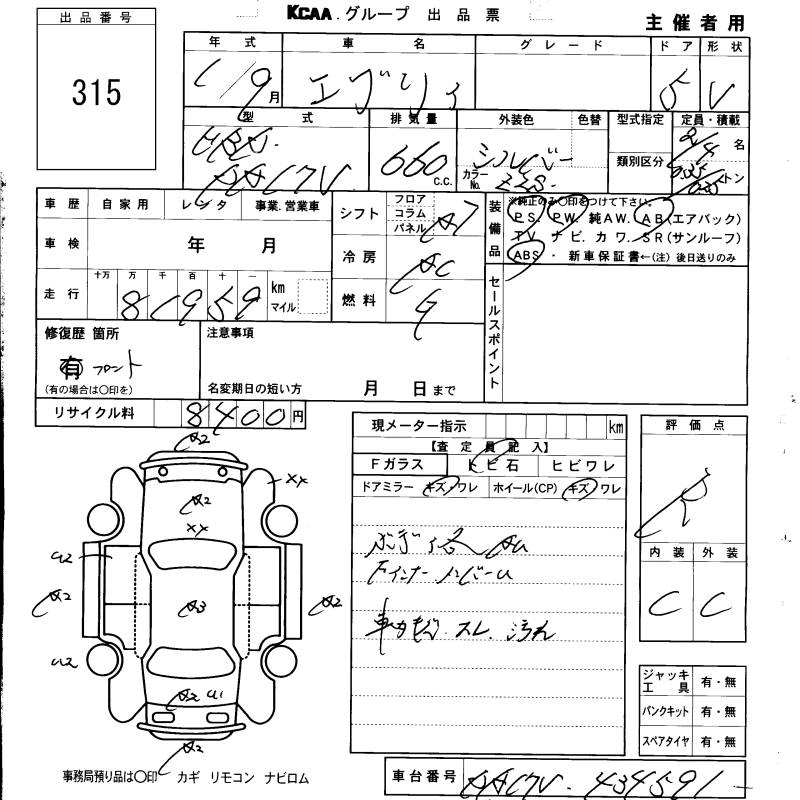 KCAA グループ 出品票
主催者用
出品番号
315
年式 車名 グレード ドア 形状
1/9月 エブリイ 5 V
型式 排気量 外装色 色替 型式指定 定員・積載
660 c.c. シルバー カラーNo. Z2S 類別区分 2/4名
DA17V トン
車歴 自家用 レンタ 事業.営業車
車検 年 月
走行 十万 万 千 百 十 一 km マイル
81959
シフト フロア コラム パネル AT
冷房 AC
燃料 G
装備品 ※純正のみ〇印をつけて下さい。
PS. PW. 純AW. AB(エアバック)
TV ナビ. カワ. SR(サンルーフ)
ABS ・ 新車保証書←(注) 後日送りのみ
セールスポイント
修復歴 箇所
有 フロント
(有の場合は〇印を)
注意事項
名変期日の短い方 月 日まで
リサイクル料 8400円
現メーター指示 km
【査定員記入】
Fガラス トビ石 ヒビワレ
ドアミラー キズ・ワレ ホイール(CP) キズ・ワレ
評価点
R
内装 外装
C C
A2
XX
A2
XX
U2
A2 A3 A2
U2
A2 U1
A2
車内モゲ. スレ. 汚れ
ジャッキ工具 有・無
パンクキット 有・無
スペアタイヤ 有・無
事務局預り品は〇印 カギ リモコン ナビロム
車台番号 DA17V-434591